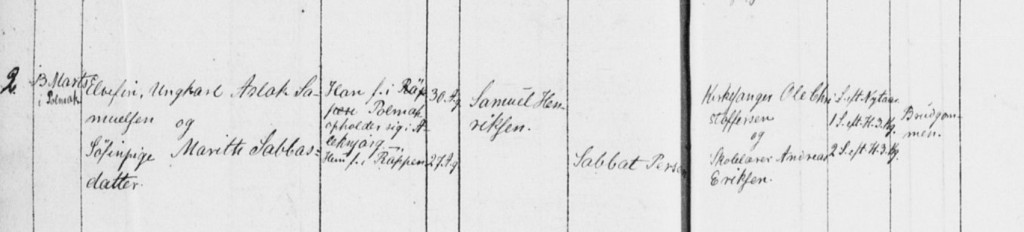 2.
13 Marts
i Polmak
Elvefin, Ungkarl Aslak Sa-
muelsen og
Söfinpige Maritt Sabbas-
datter.
Han f. i
Polmak
opholder sig i
Hun f. i
30 Ag
27 Ag
Samuel Hen-
riksen.
Sabbat Persen
Kirkesanger Ole Chri-
stoffersen
og
Skolelærer Andreas
Eriksen.
S. eft. Nytaar
1 S. eft. H.3.Kg.
2 S. eft. H.3.Kg.
Brudgom-
men.